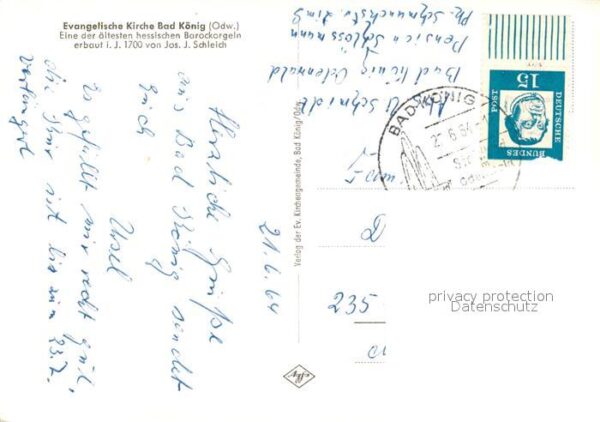 Evangelische Kirche Bad König (Odw.)
Eine der ältesten hessischen Barockorgeln
erbaut i. J. 1700 von Jos. J. Schleich
Herzliche Grüße
aus Bad König sendet
Euch
Ursel
Es gefällt mir recht gut,
die Kur ist bis zum 23.7.
verlängert
21.6.64
Verlag der Ev. Kirchengemeinde, Bad König/Odw.
Abs. U. Schmidt
Bad König Odenwald
Pension Schlossmann
BAD KÖNIG
21.6.64
15
DEUTSCHE
BUNDES
POST
D
235
privacy protection
Datenschutz